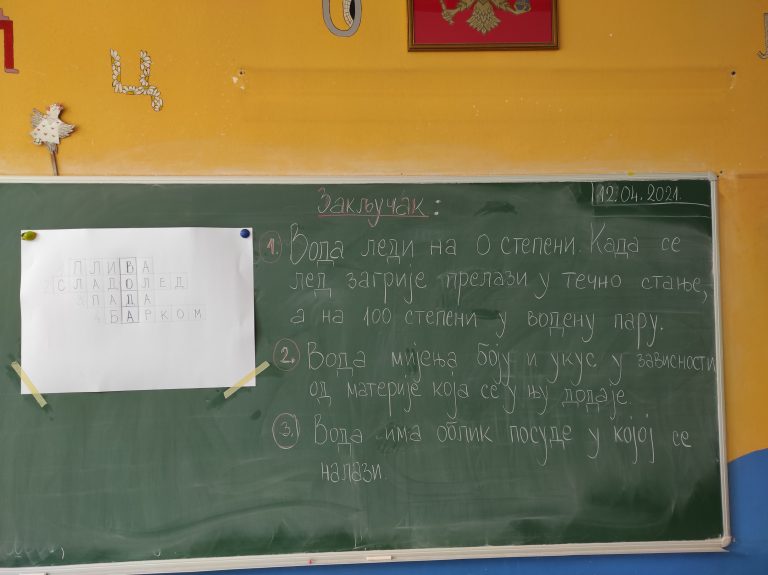 Ц
Закључак:
12.04.2021.
1. Вода леди на 0 степени. Када се
лед загрије прелази у течно стање,
а на 100 степени у водену пару.
2. Вода мијења боју и укус у зависности
од материје која се у њу додаје.
3. Вода има облик посуде у којој се
налази.
ПЛИВА
2 СЛАДОЛЕД
3 ПАДА
4 БАРКОМ